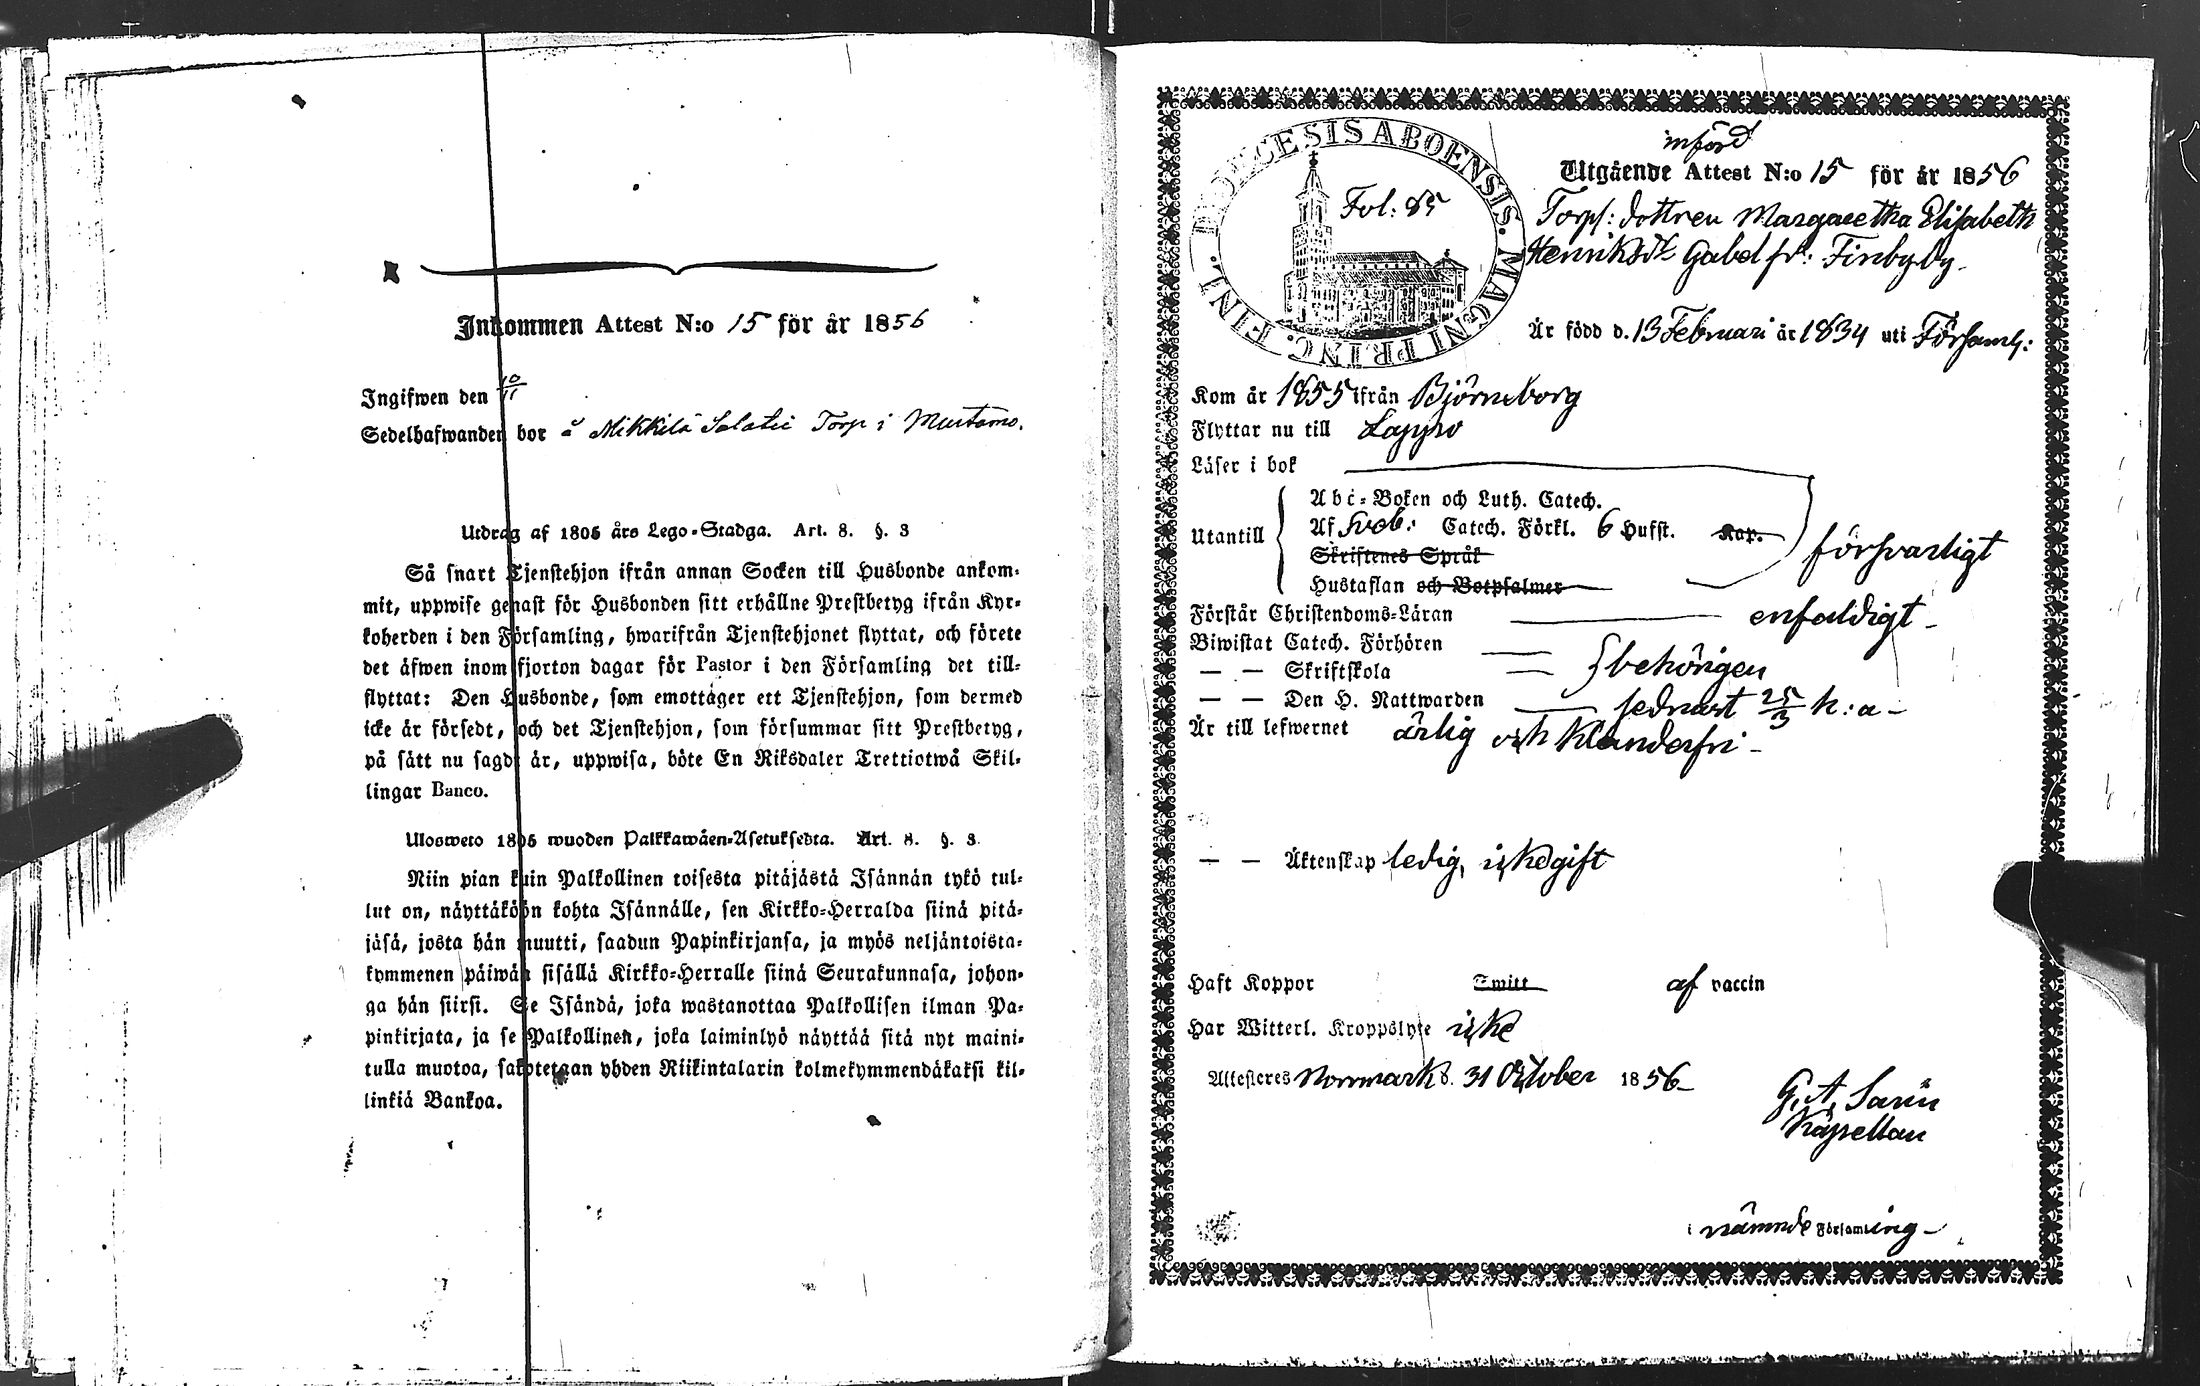 Inkommen Attest N:o 15 för år 1856
Ingifwen den 10/11
Sedelhafwanden bor å Mikkilä Salatie Torp i Mustamo.
Utdrag af 1805 års Lego-Stadga. Art. 8. §. 3
Så snart Tjenstehjon ifrån annan Socken till Husbonde ankom-
mit, uppwise genast för Husbonden sitt erhållne Prestbetyg ifrån Kyr-
koherden i den Församling, hwarifrån Tjenstehjonet flyttat, och förete
det äfwen inom fjorton dagar för Pastor i den Församling det till-
flyttat: Den Husbonde, som emottager ett Tjenstehjon, som dermed
icke är försedt, och det Tjenstehjon, som försummar sitt Prestbetyg,
på sätt nu sagdt är, uppwisa, böte En Riksdaler Trettiotwå Skil-
lingar Banco.
Ulosweto 1805 wuoden Palkkawäen-Asetuksesta. Art. 8. §. 3
Niin pian kuin Palkollinen toisesta pitäjästä Isännän tykö tul-
lut on, näyttäköön kohta Isännälle, sen Kirkko-Herralda siinä pitä-
jäsä, josta hän muutti, saadun Papinkirjansa, ja myös neljäntoista-
kymmenen päiwän sisällä Kirkko-Herralle siinä Seurakunnasa, johon-
ga hän siirsi. Se Isändä, joka wastanottaa Palkollisen ilman Pa-
pinkirjata, ja se Palkollinen, joka laiminlyö näyttää sitä nyt maini-
tulla muotoa, sakotetaan yhden Riikintalarin kolmekymmendäkaksi kil-
linkiä Bankoa.
DIOECESIS ABOENSIS. MAGNI PRINC. FINL.
Fol: 85
införd
Utgående Attest N:o 15 för år 1856
Torp: dottren Margaretha Elisabeth
Henriksdr Gabel fr: Finbyby
Är född d. 13 Februari år 1834 uti Församl:
Kom år 1855 ifrån Björneborg
Flyttar nu till Lappo
Läser i bok
Utantill
Abc-Boken och Luth. Catech.
Af Sveb: Catech. Förkl. 6 Hufst. Kap.
Skriftenes Språk
Hustaflan och Botpsalmer
försvarligt
Förstår Christendoms-Läran enfaldigt
Biwistat Catech. Förhören
— — Skriftskola behörigen
— — Den H. Nattwarden sednast 25/3 h: a
Är till lefwernet ärlig och klanderfri
— — Äktenskap ledig, icke gift
Haft Koppor Smitt af vaccin
Har Witterl. Kroppslyte icke
Attesteres Norrmark d. 31 October 1856
G. A. Sarin
Kapellan
i nämnde Församling